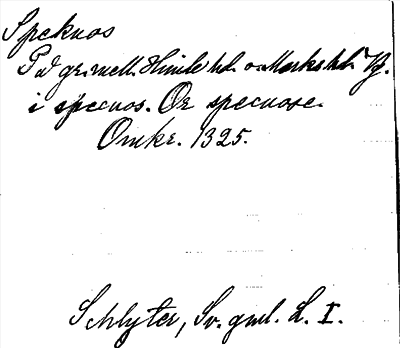 Speknos
På gr. mell. Himle hd. o. Marks hd. Vg.
i specnos. Or specnose.
Omkr. 1325.
Schlyter, Sv. gml. L. I.